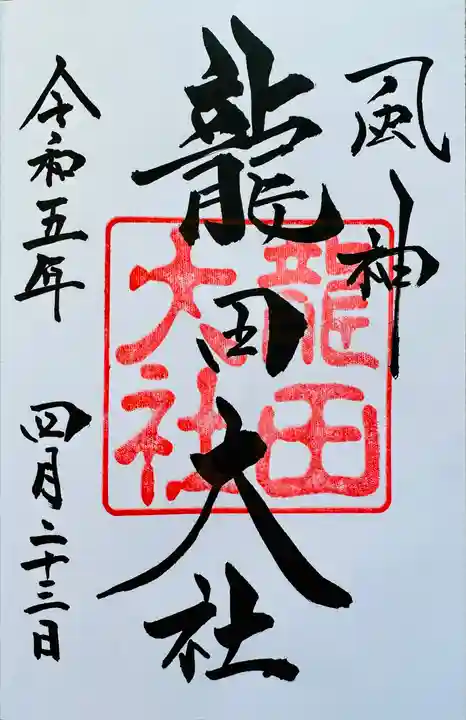 風神
龍田大社
龍田
大社
令和五年 四月二十三日